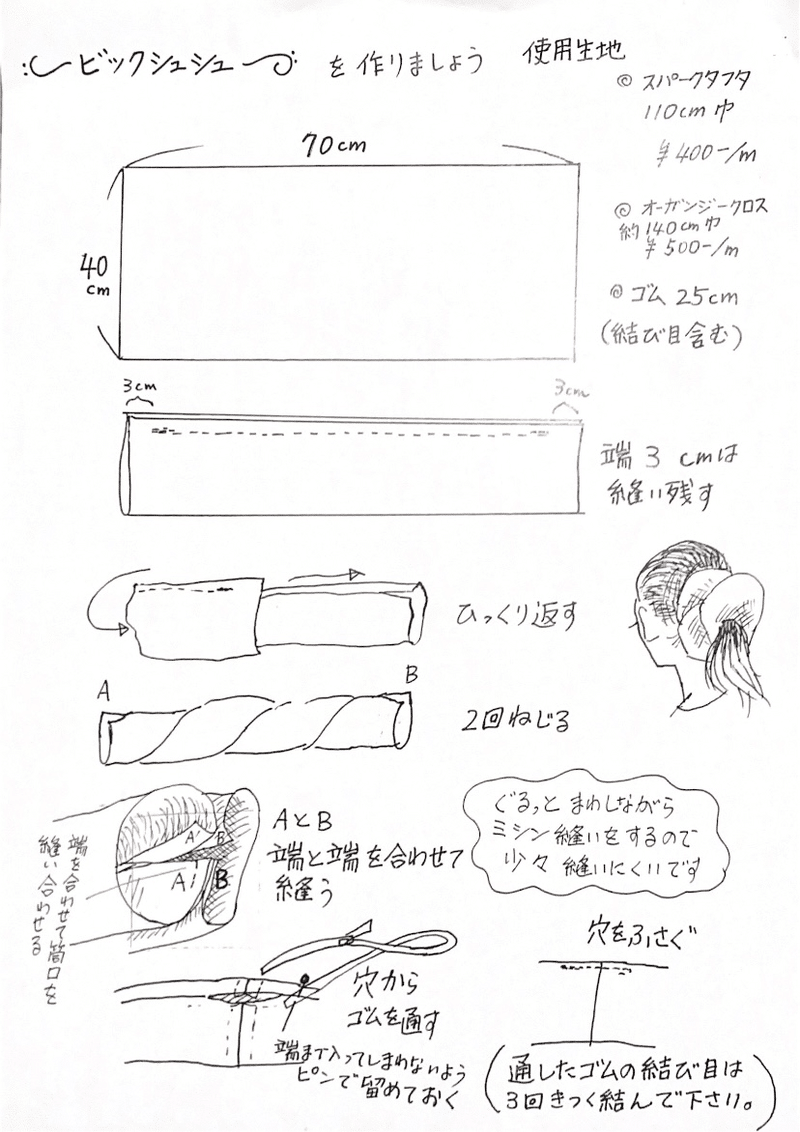 ビックシュシュ を作りましょう
使用生地
◎ スパークタフタ
110cm巾
¥400-/m
◎ オーガンジークロス
約140cm巾
¥500-/m
◎ ゴム 25cm
(結び目含む)
70cm
40
cm
3cm
3cm
端3cmは
縫い残す
ひっくり返す
A
B
2回ねじる
AとB
端と端を合わせて
縫う
A'
B'
A
B
端を合わせて筒口を
縫い合わせる
ぐるっとまわしながら
ミシン縫いをするので
少々縫いにくいです
穴から
ゴムを通す
端まで入ってしまわないよう
ピンで留めておく
穴をふさぐ
(通したゴムの結び目は
3回きつく結んで下さい。)